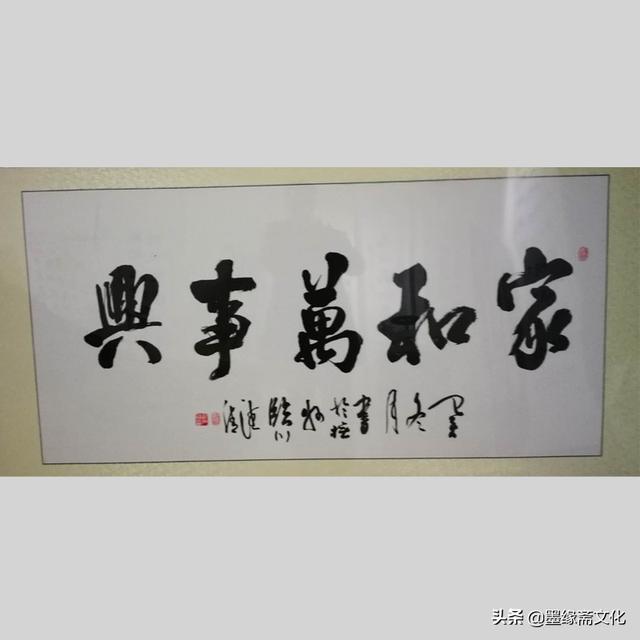 家和萬事興
冬月書於
臨川
头条 @墨缘斋文化